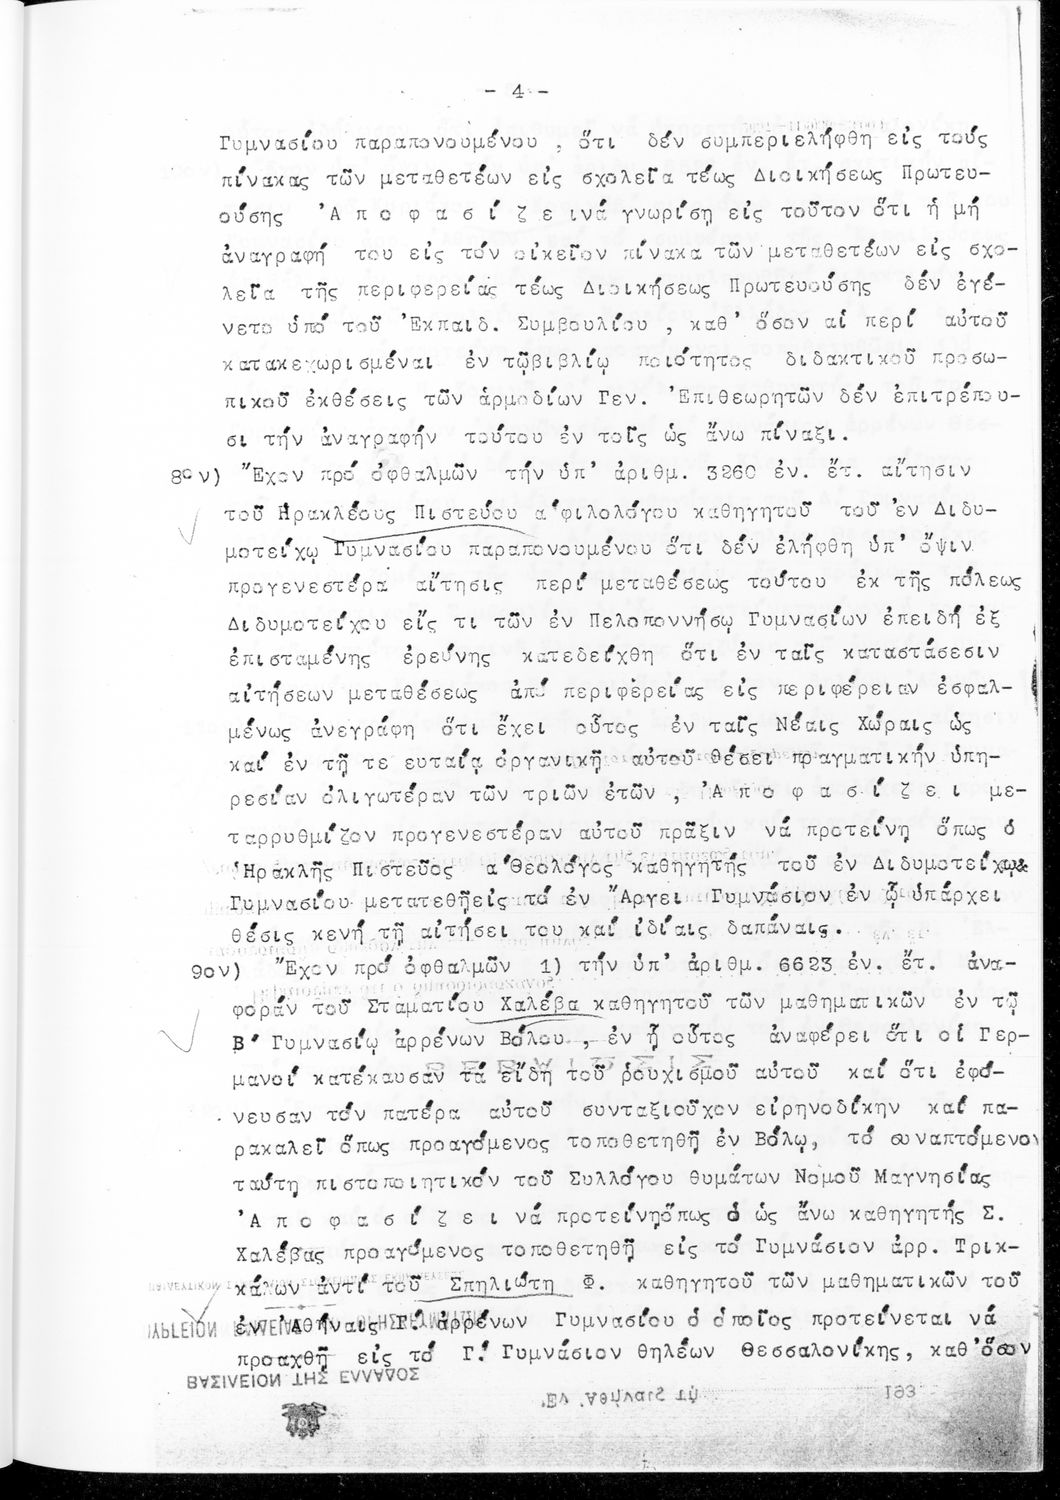 - 4 -
Γυμνασίου παραπονουμένου , ὅτι δέν συμπεριελήφθη εἰς τούς
πίνακας τῶν μεταθετέων εἰς σχολεῖα τέως Διοικήσεως Πρωτευ-
ούσης 'Α π ο φ α σ ί ζ ε ινά γνωρίση εἰς τοῦτον ὅτι ἡ μή
ἀναγραφή του εἰς τόν οἰκεῖον πίνακα τῶν μεταθετέων εἰς σχο-
λεῖα τῆς περιφερείας τέως Διοικήσεως Πρωτευούσης δέν ἐγέ-
νετο ὑπό τοῦ 'Εκπαιδ. Συμβουλίου , καθ' ὅσον αἱ περί αὐτοῦ
κατακεχωρισμέναι ἐν τῷβιβλίῳ ποιότητος διδακτικοῦ προσω-
πικοῦ ἐκθέσεις τῶν ἁρμοδίων Γεν. 'Επιθεωρητῶν δέν ἐπιτρέπου-
σι τήν ἀναγραφήν τούτου ἐν τοῖς ὡς ἄνω πίναξι.
8ον) Ἔχον πρό ὀφθαλμῶν τήν ὑπ' ἀριθμ. 3260 ἐν. ἔτ. αἴτησιν
τοῦ Ηρακλέους Πιστεύου α'φιλολόγου καθηγητοῦ τοῦ ἐν Διδυ-
μοτείχῳ Γυμνασίου παραπονουμένου ὅτι δέν ἐλήφθη ὑπ' ὄψιν
προγενεστέρα αἴτησις περί μεταθέσεως τούτου ἐκ τῆς πόλεως
Διδυμοτείχου εἴς τι τῶν ἐν Πελοποννήσῳ Γυμνασίων ἐπειδή ἐξ
ἐπισταμένης ἐρεύνης κατεδείχθη ὅτι ἐν ταῖς καταστάσεσιν
αἰτήσεων μεταθέσεως ἀπό περιφερείας εἰς περιφέρειαν ἐσφαλ-
μένως ἀνεγράφη ὅτι ἔχει οὗτος ἐν ταῖς Νέαις Χώραις ὡς
καί ἐν τῇ τε ευταίᾳ ὀργανικῇ αὐτοῦ θέσει πραγματικήν ὑπη-
ρεσίαν ὀλιγωτέραν τῶν τριῶν ἐτῶν , 'Α π ο φ α σ ί ζ ε ι με-
ταρρυθμίζον προγενεστέραν αὐτοῦ πρᾶξιν νά προτείνη ὅπως ὁ
Ἡρακλῆς Πιστεῦος α'Θεολόγος καθηγητής τοῦ ἐν Διδυμοτείχῳ
Γυμνασίου μετατεθῇεἰς τό ἐν Ἄργει Γυμνάσιον ἐν ᾧ ὑπάρχει
θέσις κενή τῇ αἰτήσει του καί ἰδίαις δαπάναις.
9ον) Ἔχον πρό ὀφθαλμῶν 1) τήν ὑπ' ἀριθμ. 6623 ἐν. ἔτ. ἀνα-
φοράν τοῦ Σταματίου Χαλέβα καθηγητοῦ τῶν μαθηματικῶν ἐν τῷ
Β' Γυμνασίῳ ἀρρένων Βόλου , ἐν ᾗ οὗτος ἀναφέρει ὅτι οἱ Γερ-
μανοί κατέκαυσαν τά εἴδη τοῦ ρουχισμοῦ αὐτοῦ καί ὅτι ἐφό-
νευσαν τόν πατέρα αὐτοῦ συνταξιοῦχον εἰρηνοδίκην καί πα-
ρακαλεῖ ὅπως προαγόμενος τοποθετηθῇ ἐν Βόλῳ, τό συναπτόμενον
ταύτη πιστοποιητικόν τοῦ Συλλόγου θυμάτων Νομοῦ Μαγνησίας
'Α π ο φ α σ ί ζ ε ι νά προτείνῃὅπως ὁ ὡς ἄνω καθηγητής Σ.
Χαλέβας προαγόμενος τοποθετηθῇ εἰς τό Γυμνάσιον ἀρρ. Τρικ-
κάλων ἀντί τοῦ Σπηλιώτη Φ. καθηγητοῦ τῶν μαθηματικῶν τοῦ
ἐν 'Αθήναις Γ' ἀρρένων Γυμνασίου ὁ ὁποῖος προτείνεται νά
προαχθῇ εἰς τό Γ' Γυμνάσιον θηλέων Θεσσαλονίκης, καθ'ὅσον
ΒΑΣΙΛΕΙΟΝ ΤΗΣ ΕΛΛΑΔΟΣ